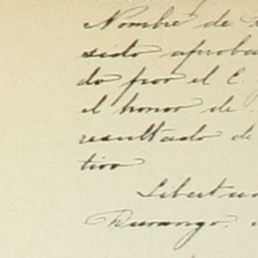 Nombre de
sido aproba
do por el C.
el honor de
resultado de
tivo
Libertad
Durango.